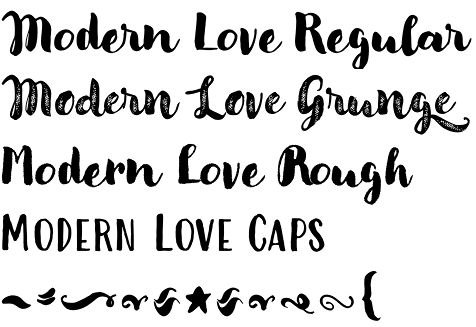 Modern Love Regular
Modern Love Grunge
Modern Love Rough
MODERN LOVE CAPS